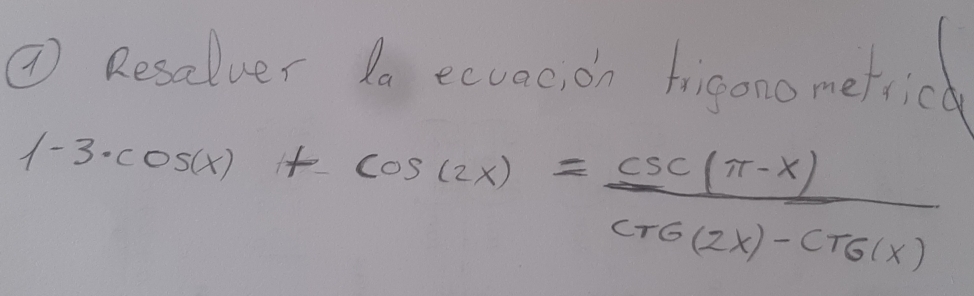 ① Resolver la ecuación trigonometrica
1-3·cos(x) + cos(2x) = csc(π-x)
CTG(2x)-CTG(x)